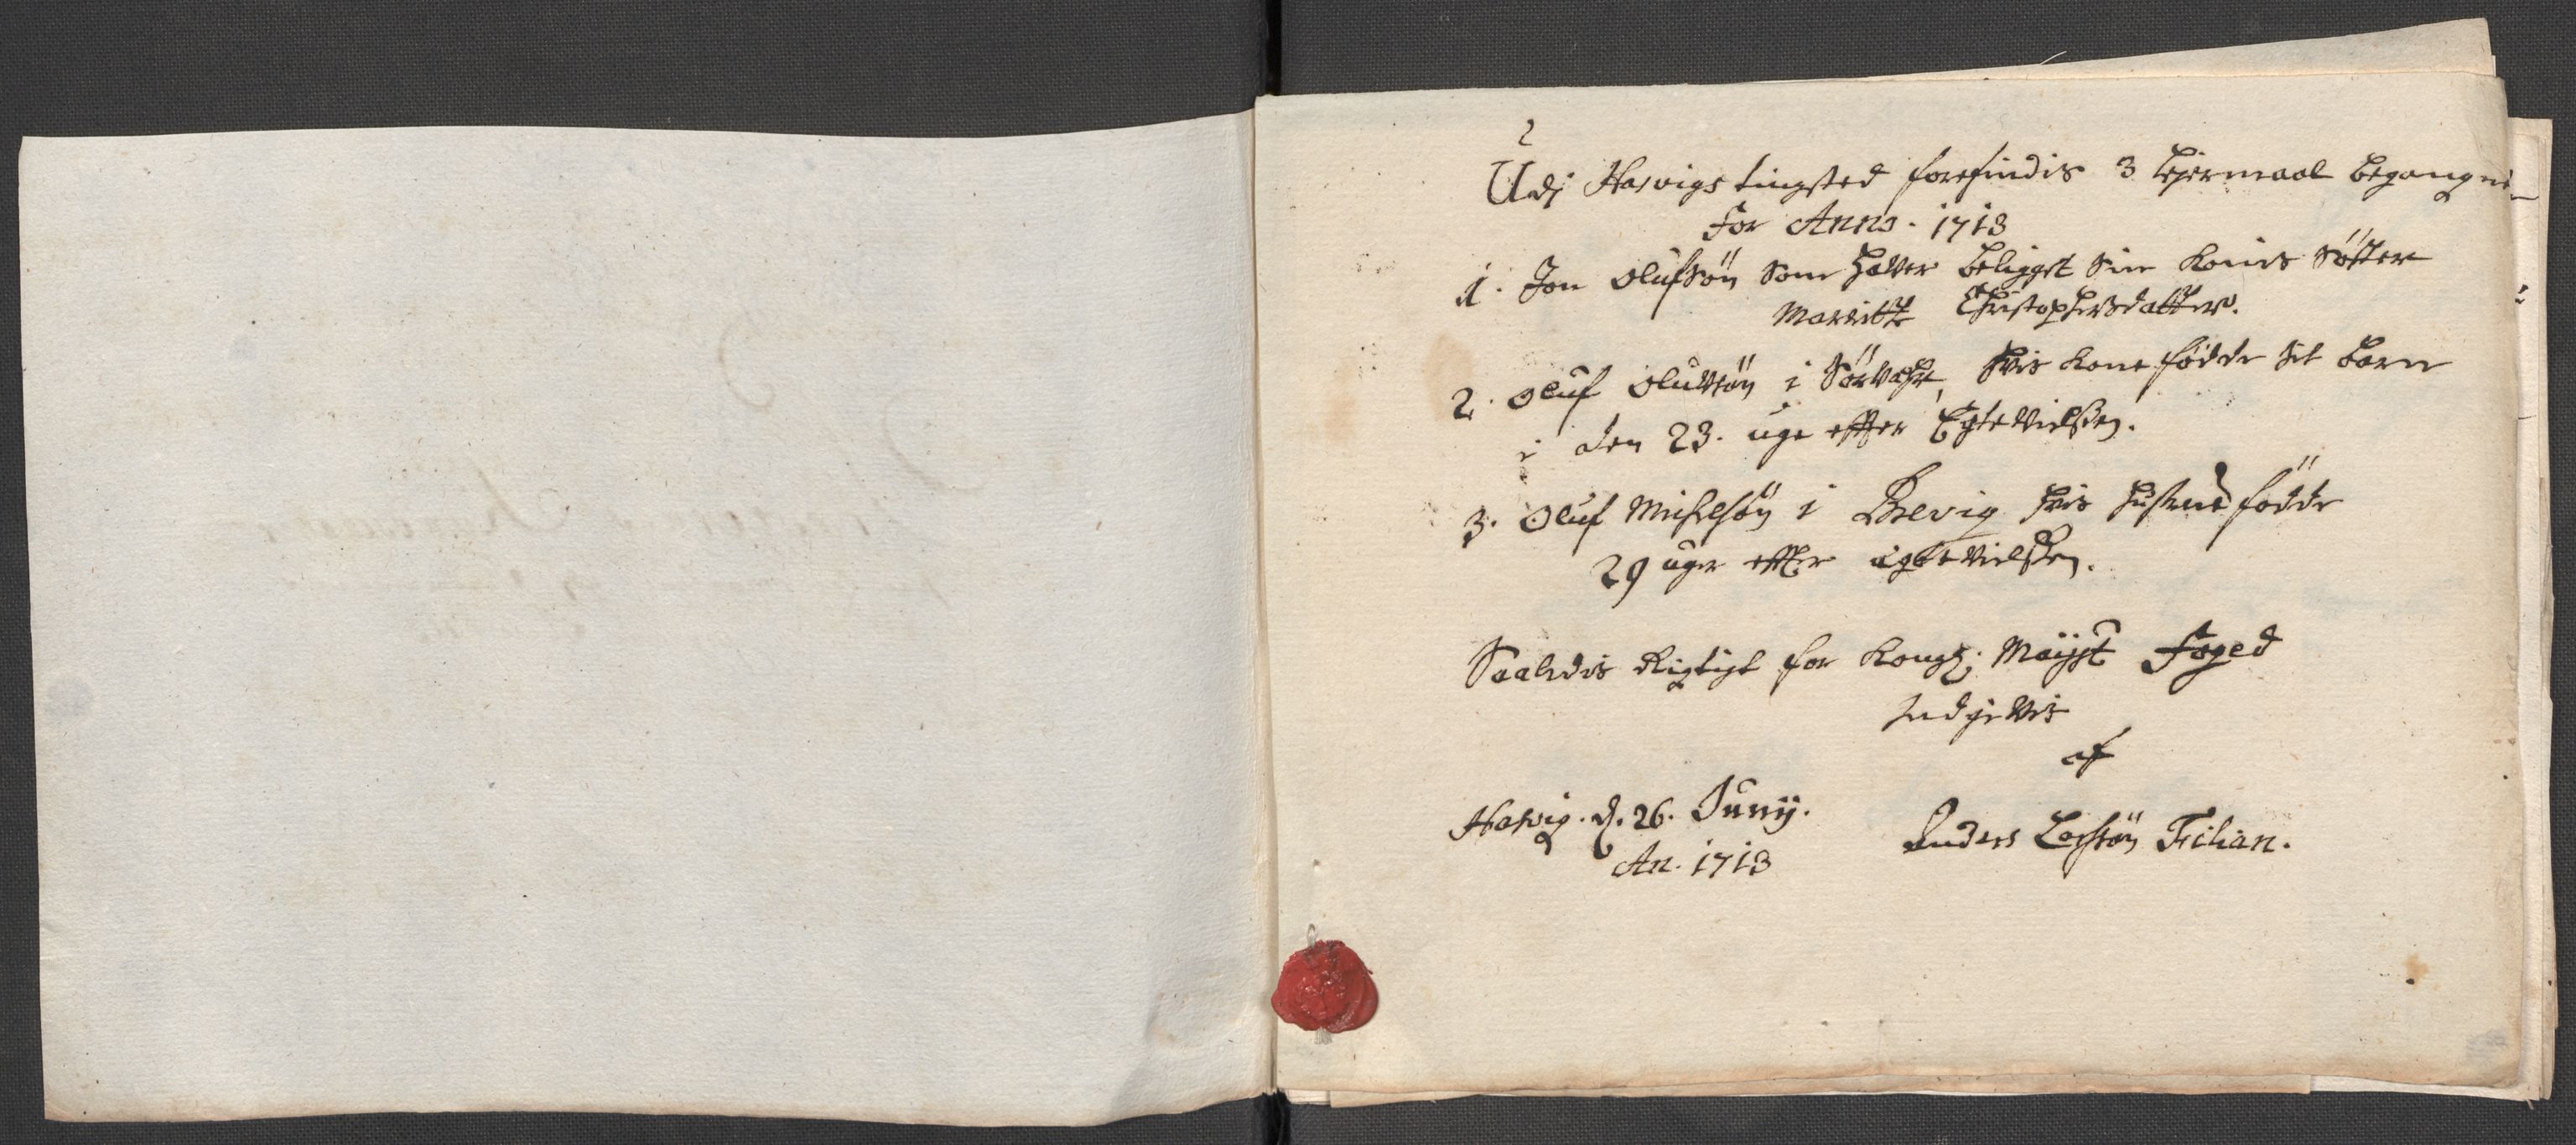 2
Udj Hasvigs tingsted forefindis 3 Leiermaal begangne
for Anno. 1713
1. Jon Olufsön som haver beligget sin Konis Söster
Marritte Christophersdatter.
2. Oluf Oluvsön i Sörvaht, hvis Kone födde sit barn
i den 23. uge effter Egtevielsen.
3. Oluf Michelsön i Brevig hvis hustrue födde
29 uger effter egtevielsen.
Saaledis Rigtigt for Kongl: Mayst Foged
Indgivis
af
Hasvig. d. 26. Junij.
An. 1713
Anders Larssön Filian.